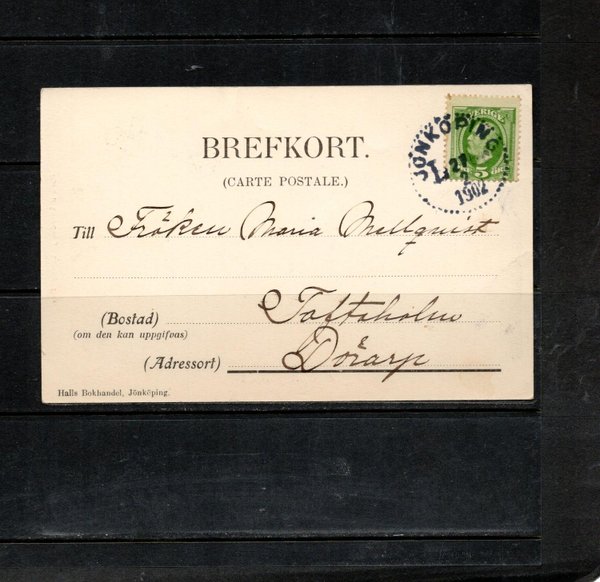 BREFKORT.
(CARTE POSTALE.)
SVERIGE
5
JÖNKÖPING
L
21
2
1902
Till Fröken Maria Mellqvist
(Bostad) Toftaholm
(om den kan uppgifvas)
(Adressort) Dörarp
Halls Bokhandel, Jönköping.